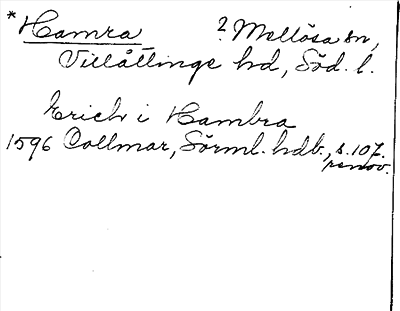 *Hamra ? Mellösa sn,
Villåttinge hd, Söd. l.
Erich i Hambra
1596 Collmar, Sörml. hdb., s. 107.
renov.